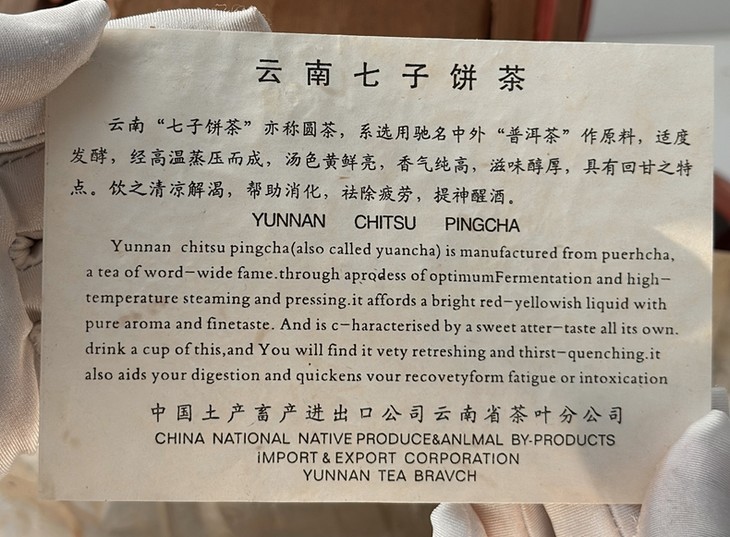 云南七子饼茶
云南“七子饼茶”亦称圆茶，系选用驰名中外“普洱茶”作原料，适度
发酵，经高温蒸压而成，汤色黄鲜亮，香气纯高，滋味醇厚，具有回甘之特
点。饮之清凉解渴，帮助消化，祛除疲劳，提神醒酒。
YUNNAN CHITSU PINGCHA
Yunnan chitsu pingcha(also called yuancha) is manufactured from puerhcha,
a tea of word-wide fame.through aprodess of optimumFermentation and high-
temperature steaming and pressing.it affords a bright red-yellowish liquid with
pure aroma and finetaste. And is c-haracterised by a sweet atter-taste all its own.
drink a cup of this,and You will find it vety retreshing and thirst-quenching.it
also aids your digestion and quickens vour recovetyform fatigue or intoxication
中国土产畜产进出口公司云南省茶叶分公司
CHINA NATIONAL NATIVE PRODUCE&ANLMAL BY-PRODUCTS
IMPORT & EXPORT CORPORATION
YUNNAN TEA BRAVCH